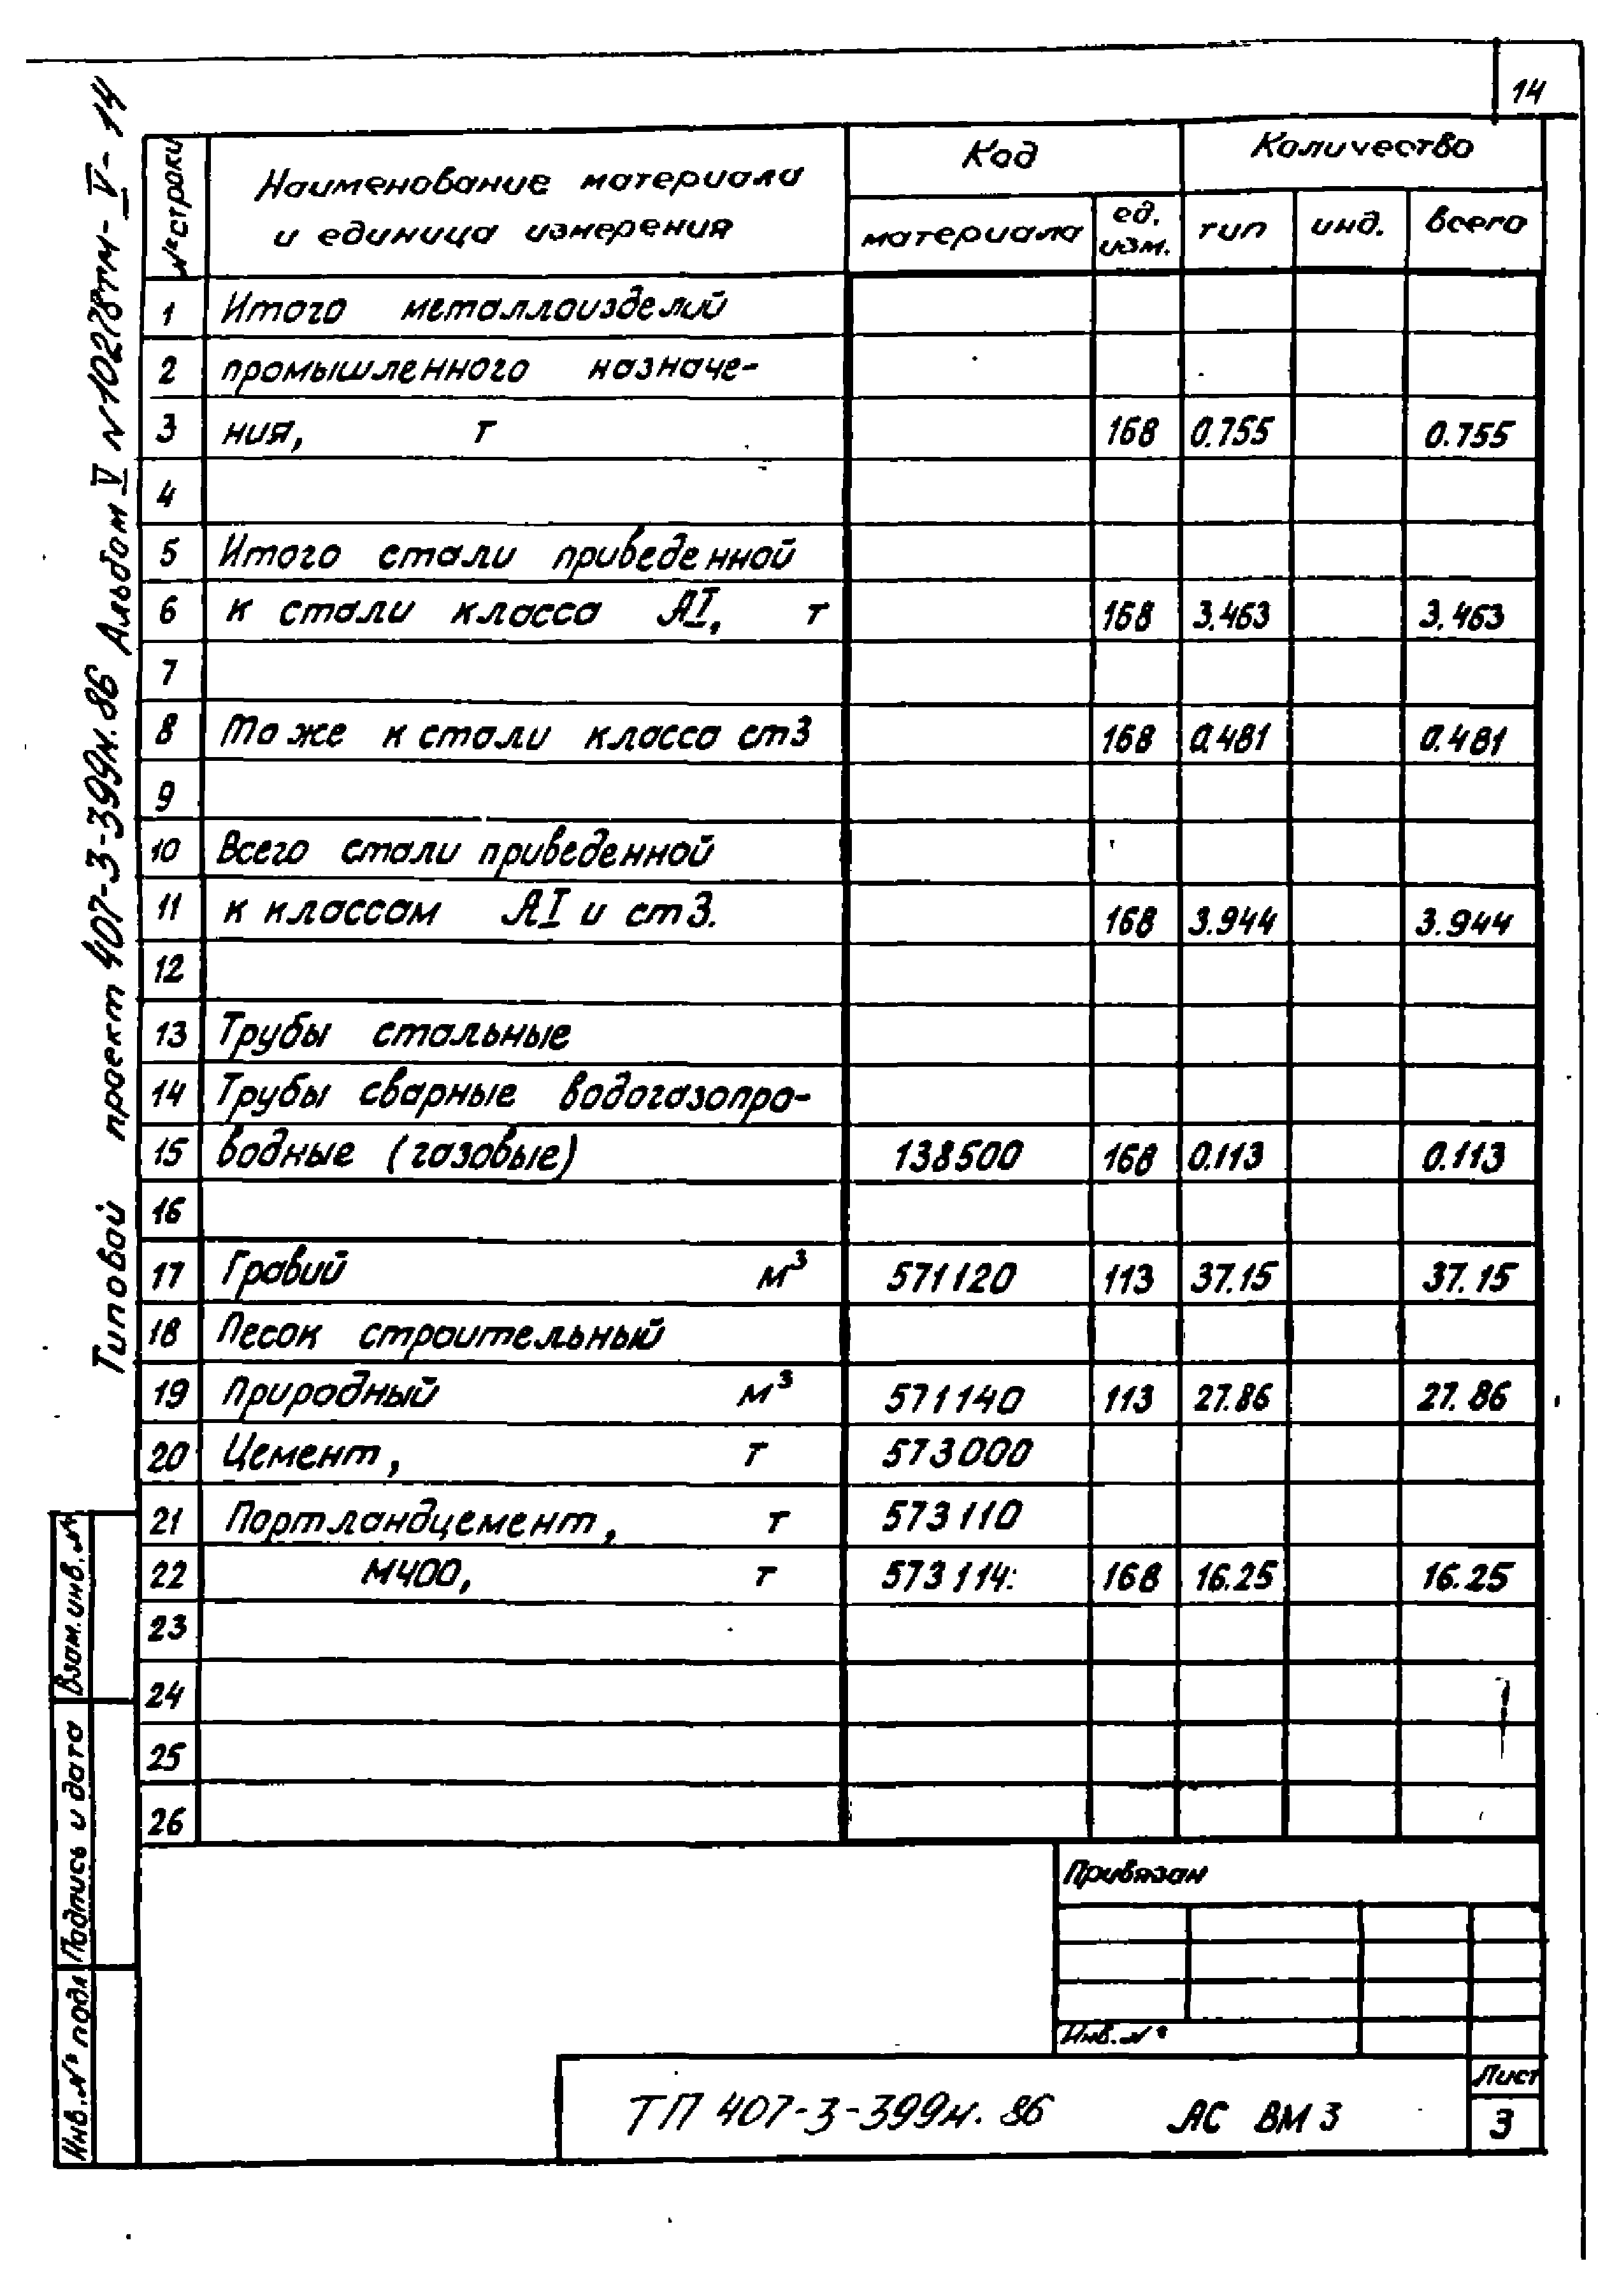 14
Типовой проект 407-3-399м.86 Альбом V N10278тм-V-14
№ строки
Наименование материала
и единица измерения
Код
Количество
материала
ед. изм.
тип
инд.
всего
1 Итого металлоизделий
2 промышленного назначе-
3 ния, т 168 0.755 0.755
4
5 Итого стали приведенной
6 к стали класса АI, т 168 3.463 3.463
7
8 То же к стали класса ст3 168 0.481 0.481
9
10 Всего стали приведенной
11 к классам АI и ст3. 168 3.944 3.944
12
13 Трубы стальные
14 Трубы сварные водогазопро-
15 водные (газовые) 138500 168 0.113 0.113
16
17 Гравий м³ 571120 113 37.15 37.15
18 Песок строительный
19 Природный м³ 571140 113 27.86 27.86
20 Цемент, т 573000
21 Портландцемент, т 573110
22 М400, т 573114. 168 16.25 16.25
23
24
25
26
Взам. инв. №
Подпись и дата
Инв. № подл
Привязан
Инв. №
ТП 407-3-399м. 86 АС ВМ 3
Лист
3